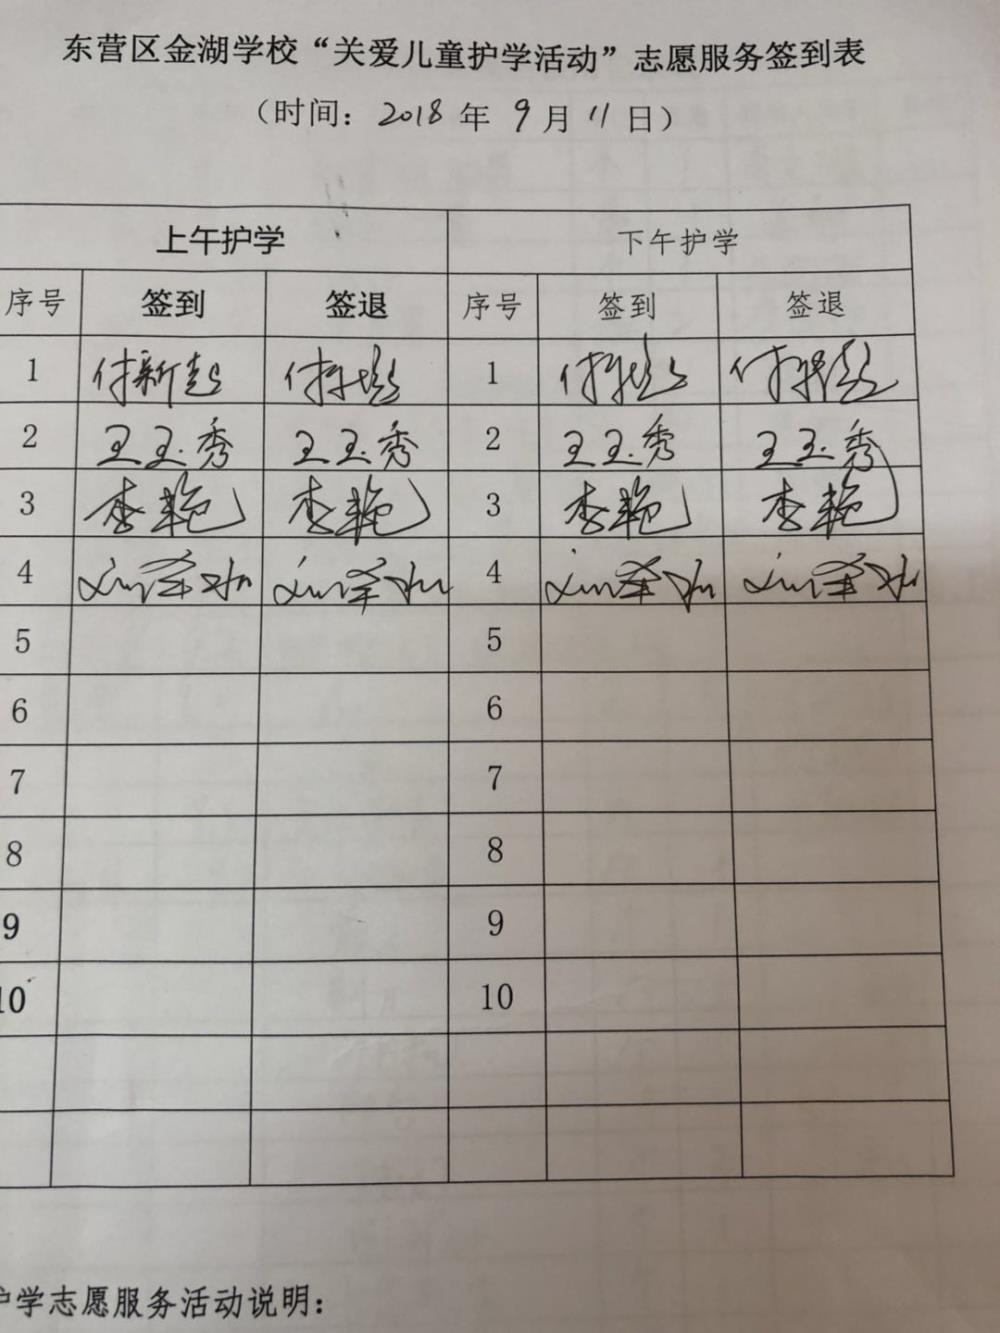 东营区金湖学校“关爱儿童护学活动”志愿服务签到表
（时间：2018年9月11日）
上午护学 下午护学
序号 签到 签退 序号 签到 签退
1 付新超 付新超 1 付新超 付新超
2 王玉秀 王玉秀 2 王玉秀 王玉秀
3 李艳 李艳 3 李艳 李艳
4 4
5 5
6 6
7 7
8 8
9 9
10 10
护学志愿服务活动说明：